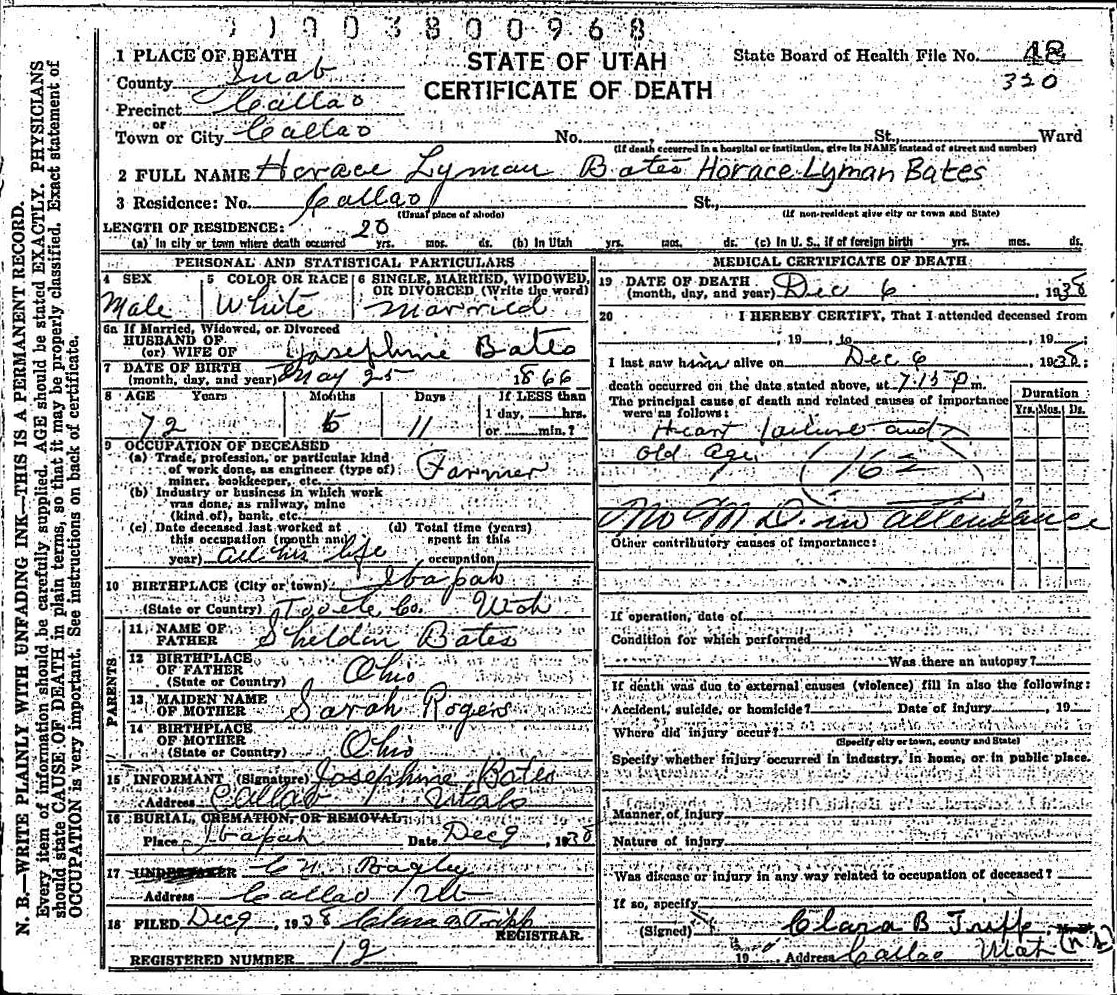 11003800968
N. B.—WRITE PLAINLY WITH UNFADING INK—THIS IS A PERMANENT RECORD.
Every item of information should be carefully supplied. AGE should be stated EXACTLY. PHYSICIANS
should state CAUSE OF DEATH in plain terms, so that it may be properly classified. Exact statement of
OCCUPATION is very important. See instructions on back of certificate.
STATE OF UTAH
CERTIFICATE OF DEATH
State Board of Health File No. 48
320
1 PLACE OF DEATH
County Juab
Precinct Callao
or
Town or City Callao No. , St., Ward
(If death occurred in a hospital or institution, give its NAME instead of street and number)
2 FULL NAME Horace Lyman Bates Horace Lyman Bates
3 Residence: No. Callao St.,
(Usual place of abode) (If non-resident give city or town and State)
LENGTH OF RESIDENCE: 20
(a) In city or town where death occurred yrs. mos. ds. (b) In Utah yrs. mos. ds. (c) In U. S., if of foreign birth yrs. mos. ds.
PERSONAL AND STATISTICAL PARTICULARS
4 SEX 5 COLOR OR RACE 6 SINGLE, MARRIED, WIDOWED,
OR DIVORCED (Write the word)
Male White Married
6a If Married, Widowed, or Divorced
HUSBAND OF
(or) WIFE OF Josephine Bates
7 DATE OF BIRTH
(month, day, and year) May 25 1866
8 AGE Years Months Days If LESS than
1 day, hrs.
72 11 or min.?
9 OCCUPATION OF DECEASED
(a) Trade, profession, or particular kind
of work done, as engineer (type of)
miner, bookkeeper, etc. Farmer
(b) Industry or business in which work
was done, as railway, mine
(kind of), bank, etc.
(c) Date deceased last worked at (d) Total time (years)
this occupation (month and spent in this
year) all his life occupation
10 BIRTHPLACE (City or town) Ibapah
(State or Country) Tooele Co. Utah
PARENTS
11 NAME OF
FATHER Sheldin Bates
12 BIRTHPLACE
OF FATHER Ohio
(State or Country)
13 MAIDEN NAME
OF MOTHER Sarah Rogers
14 BIRTHPLACE
OF MOTHER Ohio
(State or Country)
15 INFORMANT (Signature) Josephine Bates
Address Callao Utah
16 BURIAL, CREMATION, OR REMOVAL
Place Ibapah Date Dec 9, 1938
17 UNDERTAKER C N Bagley
Address Callao Ut
18 FILED Dec 9, 1938 Clara B Tripp
REGISTRAR.
REGISTERED NUMBER 12
MEDICAL CERTIFICATE OF DEATH
19 DATE OF DEATH
(month, day, and year) Dec 6 1938
20 I HEREBY CERTIFY, That I attended deceased from
, 19 , to , 19 ;
I last saw him alive on Dec 6 , 1938;
death occurred on the date stated above, at 7.15 P.m.
The principal cause of death and related causes of importance
were as follows:
Duration
Yrs. Mos. Ds.
Heart failure and
old age 162
No M D. in attendance
Other contributory causes of importance:
If operation, date of
Condition for which performed
Was there an autopsy?
If death was due to external causes (violence) fill in also the following:
Accident, suicide, or homicide? Date of injury , 19
Where did injury occur?
(Specify city or town, county and State)
Specify whether injury occurred in industry, in home, or in public place.
Manner of injury
Nature of injury
Was disease or injury in any way related to occupation of deceased?
If so, specify
(Signed) Clara B Tripp
19 Address Callao Utah